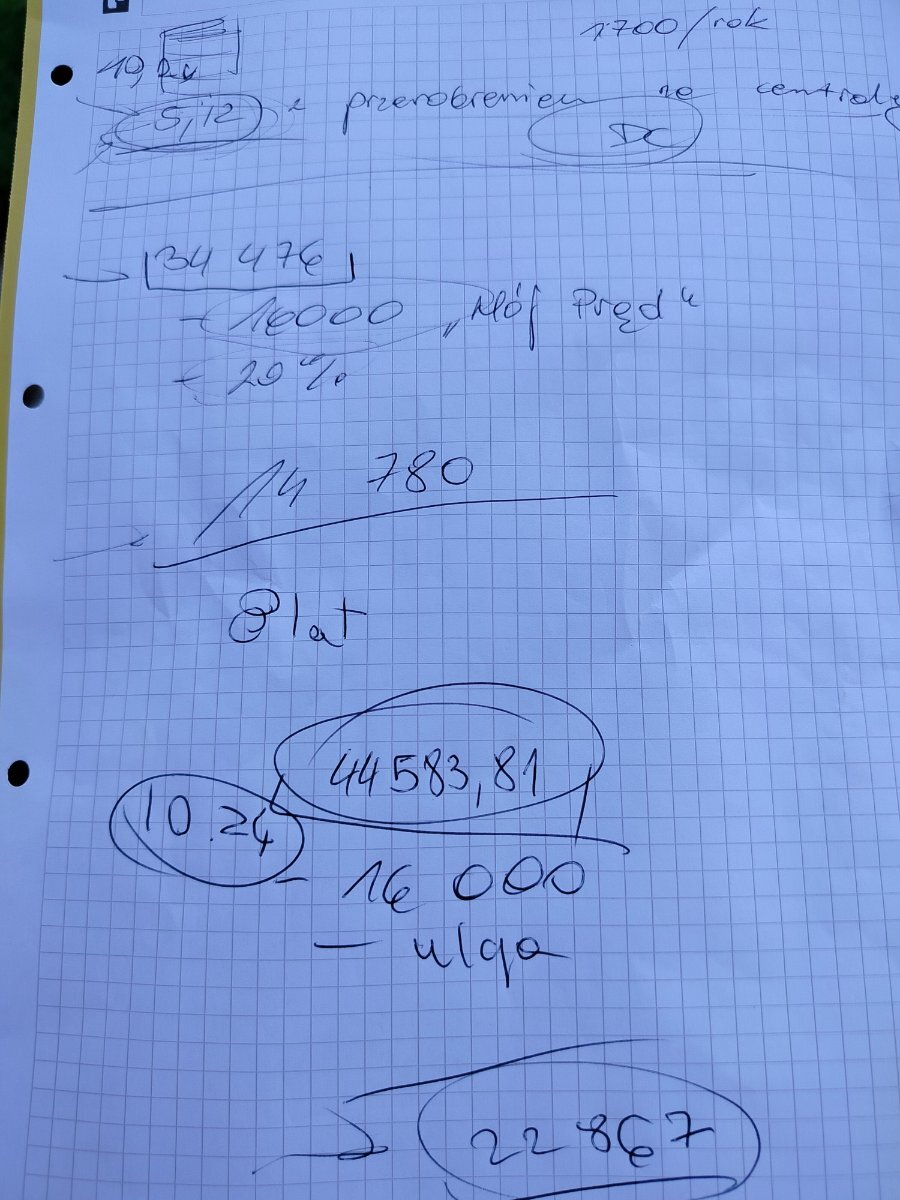 1700/rok
10,24
5,12 z przerobieniem ze centralę
DC
34 476
- 16000 „Mój Prąd"
- 20%
14 780
8 lat
44 583,81
10.24
- 16 000
- ulga
22 867